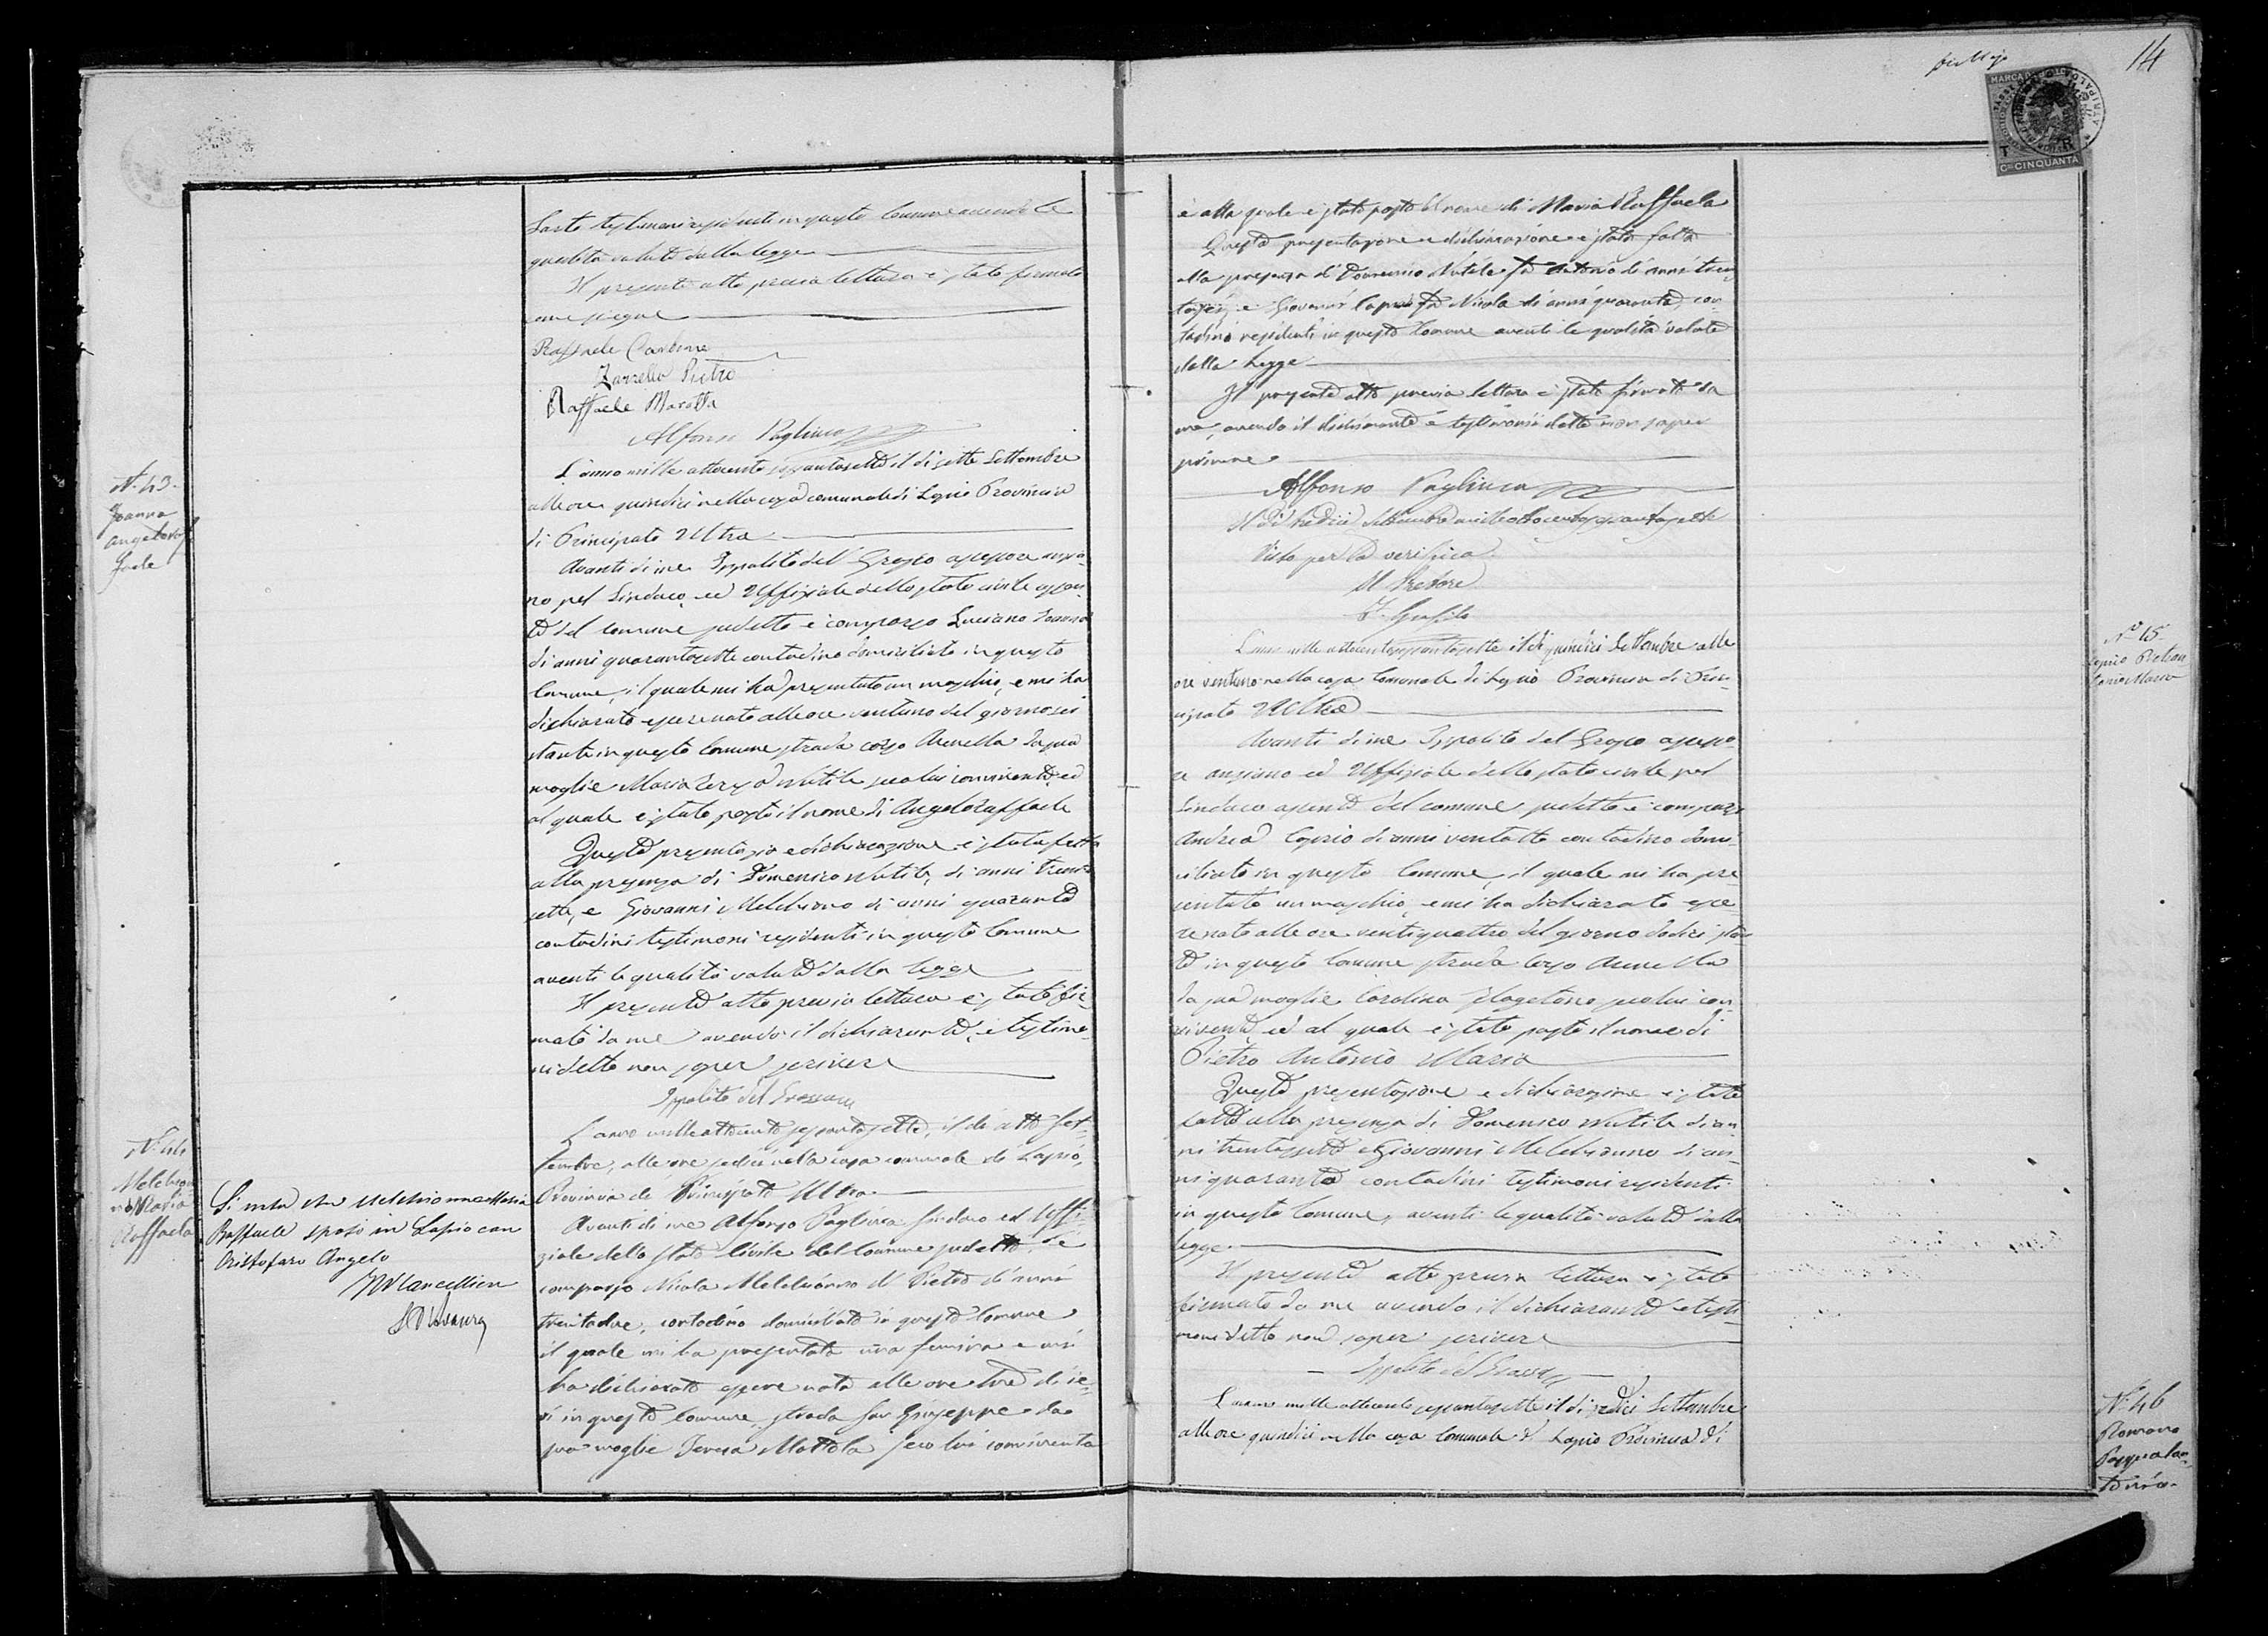 14
MARCA DA BOLLO
Cmi CINQUANTA
Sarto testimoni residenti in questo Comune aventi le
qualità volute dalla legge
Il presente atto previa lettura è stato firmato
come segue
Raffaele Carbone
Zarrella Pietro
Raffaele Marotta
Alfonso Pagliuca
N. 43.
Joanna
Angeloraf
faele
L'anno mille ottocento sessantasette il dì sette Settembre
alle ore quindici nella casa comunale di Lapio Provincia
di Principato Ultra
Avanti di me Ippolito del Grosso assessore anzia-
no pel Sindaco ed Uffiziale dello stato civile assen-
te del Comune sudetto è comparso Luciano Joanna
di anni quarantasette contadino domiciliato in questo
Comune, il quale mi ha presentato un maschio, e mi ha
dichiarato essere nato alle ore ventuno del giorno sei
stante in questo Comune strada corso Arenella da sua
moglie Maria Teresa Nutile seco lui convivente ed
al quale è stato posto il nome di Angeloraffaele
Questa presentazione e dichiarazione è stata fatta
alla presenza di Domenico Nutile, di anni trenta
sette, e Giovanni Melchionno di anni quaranta
contadini testimoni residenti in questo Comune
aventi le qualità volute dalla legge
Il presente atto previa lettura è stato fir-
mato da me avendo il dichiarante, e testimo-
ni detto non saper scrivere
Ippolito del Grosso
N. 44
Melchion
na Maria
Raffaela
Melchionna Maria
Raffaela sposò in Lapio con
Cristofaro Angelo
L'anno mille ottocento sessantasette, il dì otto Set-
tembre, alle ore sedici nella casa comunale di Lapio,
Provincia di Principato Ultra
Avanti di me Alfonso Pagliuca Sindaco ed Uffi-
ziale dello Stato Civile del Comune sudetto, è
comparso Nicola Melchionno di Pietro di anni
trentadue, contadino domiciliato in questo Comune
il quale mi ha presentata una femina e mi
ha dichiarato essere nata alle ore tre di je-
ri in questo Comune strada San Giuseppe da
sua moglie Teresa Mottola seco lui convivente
e alla quale è stato posto il nome di Maria Raffaela
Questa presentazione e dichiarazione è stata fatta
alla presenza di Domenico Nutile fu Antonio di anni tren-
tasei, e Giovanni fu Nicola di anni quaranta, con-
tadini residenti in questo Comune aventi le qualità volute
dalla Legge
Il presente atto previa lettura è stato firmato da
me, avendo il dichiarante e testimonii detto non saper
scrivere
Alfonso Pagliuca
Il dì tredici Settembre mille ottocento sessantasette
Visto per la verifica
Il Pretore
N. 45
Caprio Pietran
tonio Maria
L'anno mille ottocento sessantasette il dì quindici Settembre alle
ore ventuno nella casa Comunale di Lapio Provincia di Prin-
cipato Ultra
Avanti di me Ippolito del Grosso assesso-
re anziano ed Uffiziale dello stato civile pel
Sindaco assente del comune sudetto è comparso
Andrea Caprio di anni ventotto contadino domi-
ciliato in questo Comune, il quale mi ha pre-
sentato un maschio, e mi ha dichiarato esse-
re nato alle ore ventiquattro del giorno dodici stan
te in questo Comune strada corso Arenella
da sua moglie Carolina seco lui con-
vivente, ed al quale è stato posto il nome di
Pietro Antonio Maria
Questa presentazione e dichiarazione è stata
fatta alla presenza di Domenico Nutile di an-
ni trentasette e Giovanni Melchionno di an-
ni quaranta contadini testimoni residenti
in questo Comune, aventi le qualità volute dalla
legge
Il presente atto previa lettura è stato
firmato da me avendo il dichiarante e testi-
moni detto non saper scrivere
Ippolito del Grosso
N. 46
Romano
L'anno mille ottocento sessantasette il dì sedici Settembre
alle ore quindici nella casa Comunale di Lapio Provincia di